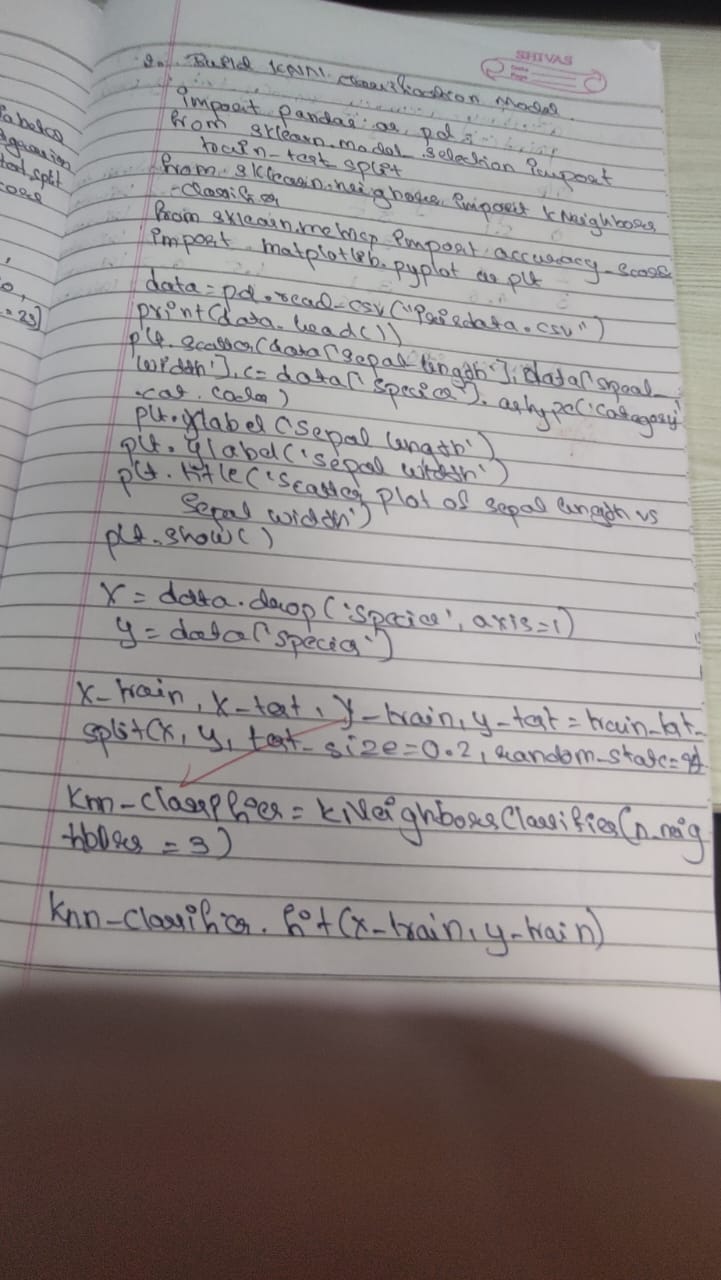 SHIVAS
2. Build KNN classification Model
import pandas as pd
from sklearn.model_selection import
train-test split
from sklearn.neighbors import KNeighbors
-classifier
from sklearn.metrics import accuracy-score
import matplotlib.pyplot as plt
data = pd.read-csv("irisdata.csv")
print(data.head())
plt.scatter(data['sepal-length'], data['sepal-
width'], c= data['species'].astype('category'
.cat.codes)
plt.xlabel('sepal length')
plt.ylabel('sepal width')
plt.title('scatter plot of sepal length vs
Sepal width')
plt.show()
X = data.drop('species', axis=1)
y = data['species']
x-train, x-test, y-train, y-test = train-test-
split(x, y, test-size=0.2, random-state=
knn-classifier = kNeighborsClassifier(n-neig
hbors = 3)
knn-classifier.fit(x-train, y-train)